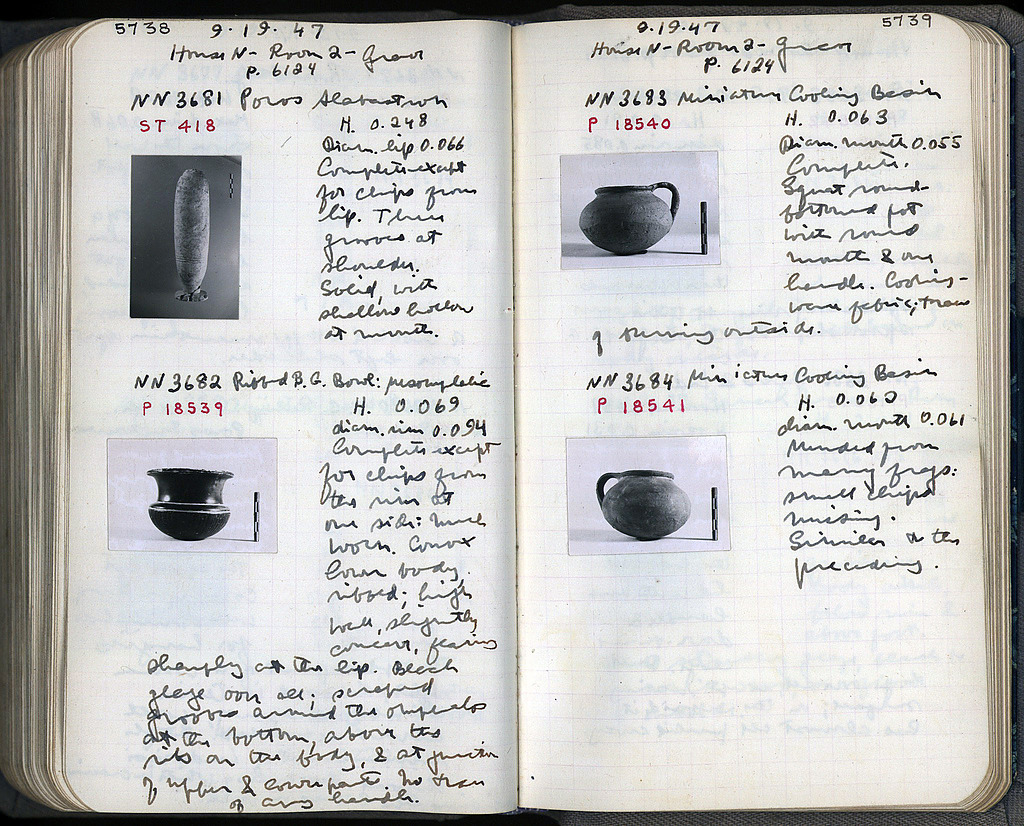 5738 9·19·47
House N - Room 2 - Grave
P. 6124
NN 3681 Poros Alabastron
ST 418
H. 0.248
Diam. lip 0.066
Complete except
for chips from
lip. Three
grooves at
shoulder.
Solid, with
shallow hollow
at mouth.
NN 3682 Ribbed B.G. Bowl: mesomphalic
P 18539
H. 0.069
diam. rim 0.094
Complete except
for chips from
the rim at
one side: much
worn. Convex
lower body,
ribbed; high
wall, slightly
concave, flaring
sharply at the lip. Black
glaze over all; scraped
grooves around the omphalos
at the bottom, above the
ribs on the body, & at junction
of upper & lower parts. No trace
of any handle.
9.19.47 5739
House N - Room 2 - Grave
P. 6124
NN 3683 Miniature Cooking Basin
P 18540
H. 0.063
Diam. mouth 0.055
Complete.
Squat round-
bottomed pot
with round
mouth & one
handle. Cooking-
ware fabric; traces
of burning outside.
NN 3684 Miniature Cooking Basin
P 18541
H. 0.060
diam. mouth 0.061
Mended from
many frags:
small chips
missing.
Similar to the
preceding.